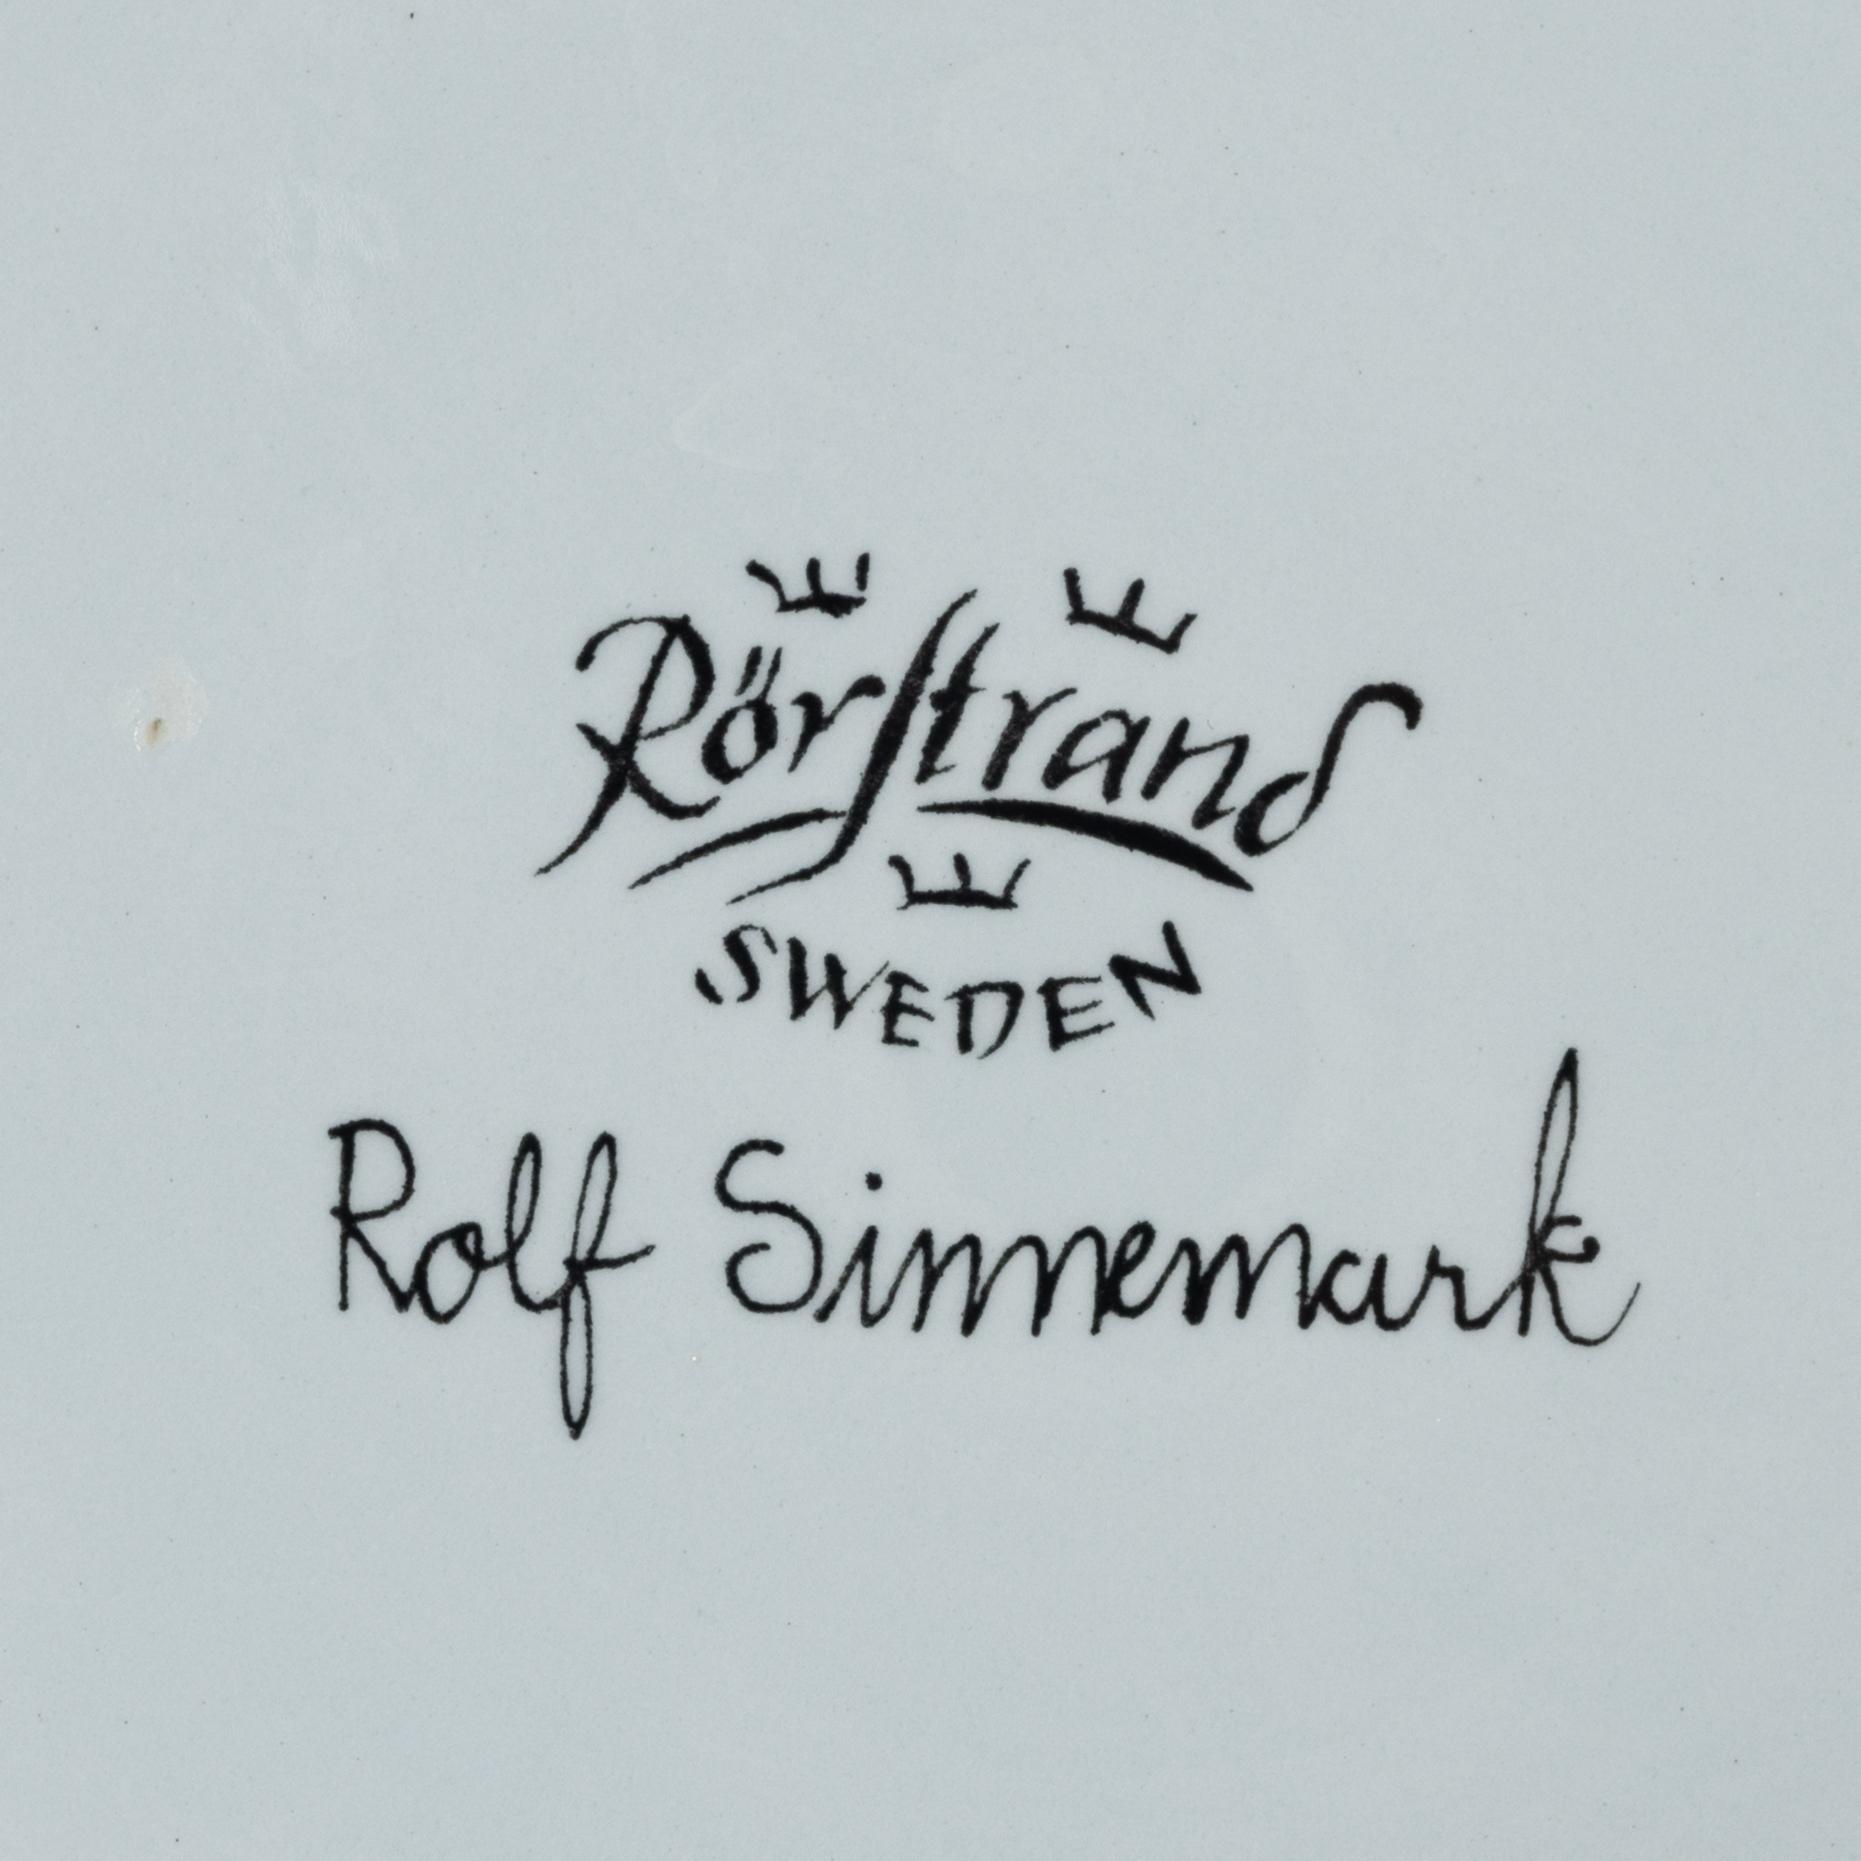 Rörstrand
SWEDEN
Rolf Sinnemark